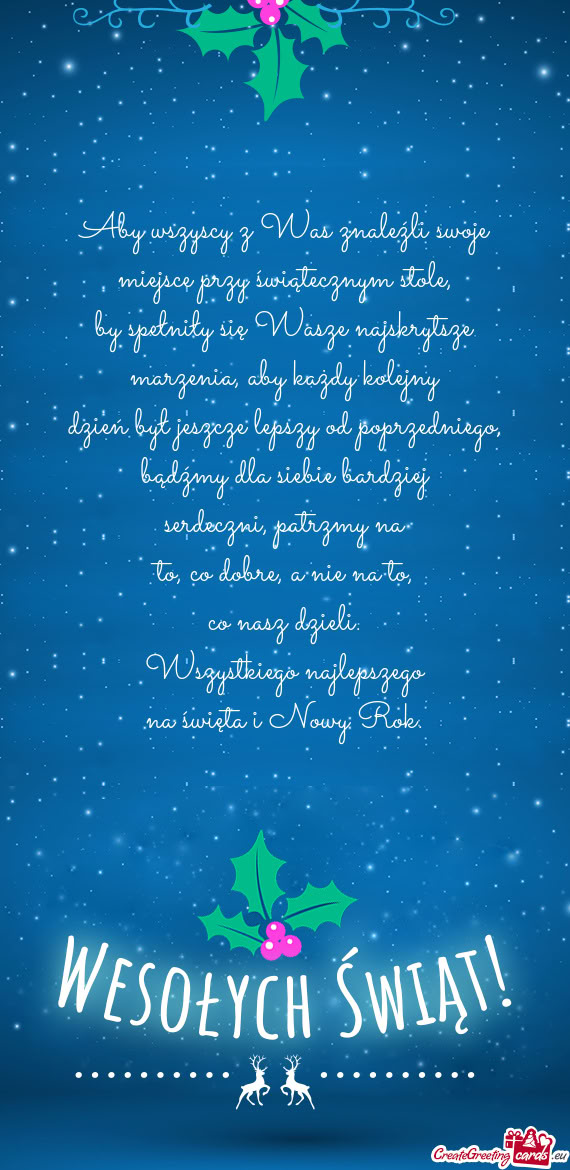 Aby wszyscy z Was znaleźli swoje
miejsce przy świątecznym stole,
by spełniły się Wasze najskrytsze
marzenia, aby każdy kolejny
dzień był jeszcze lepszy od poprzedniego,
bądźmy dla siebie bardziej
serdeczni, patrzmy na
to, co dobre, a nie na to,
co nasz dzieli.
Wszystkiego najlepszego
na święta i Nowy Rok.
Wesołych Świąt!
CreateGreetingcards.eu